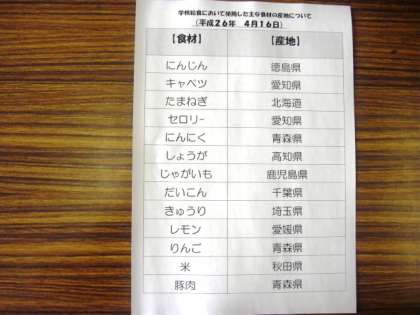 学校給食において使用した主な食材の産地について
（平成２６年　４月１６日）
【食材】　【産地】
にんじん　徳島県
キャベツ　愛知県
たまねぎ　北海道
セロリー　愛知県
にんにく　青森県
しょうが　高知県
じゃがいも　鹿児島県
だいこん　千葉県
きゅうり　埼玉県
レモン　愛媛県
りんご　青森県
米　秋田県
豚肉　青森県